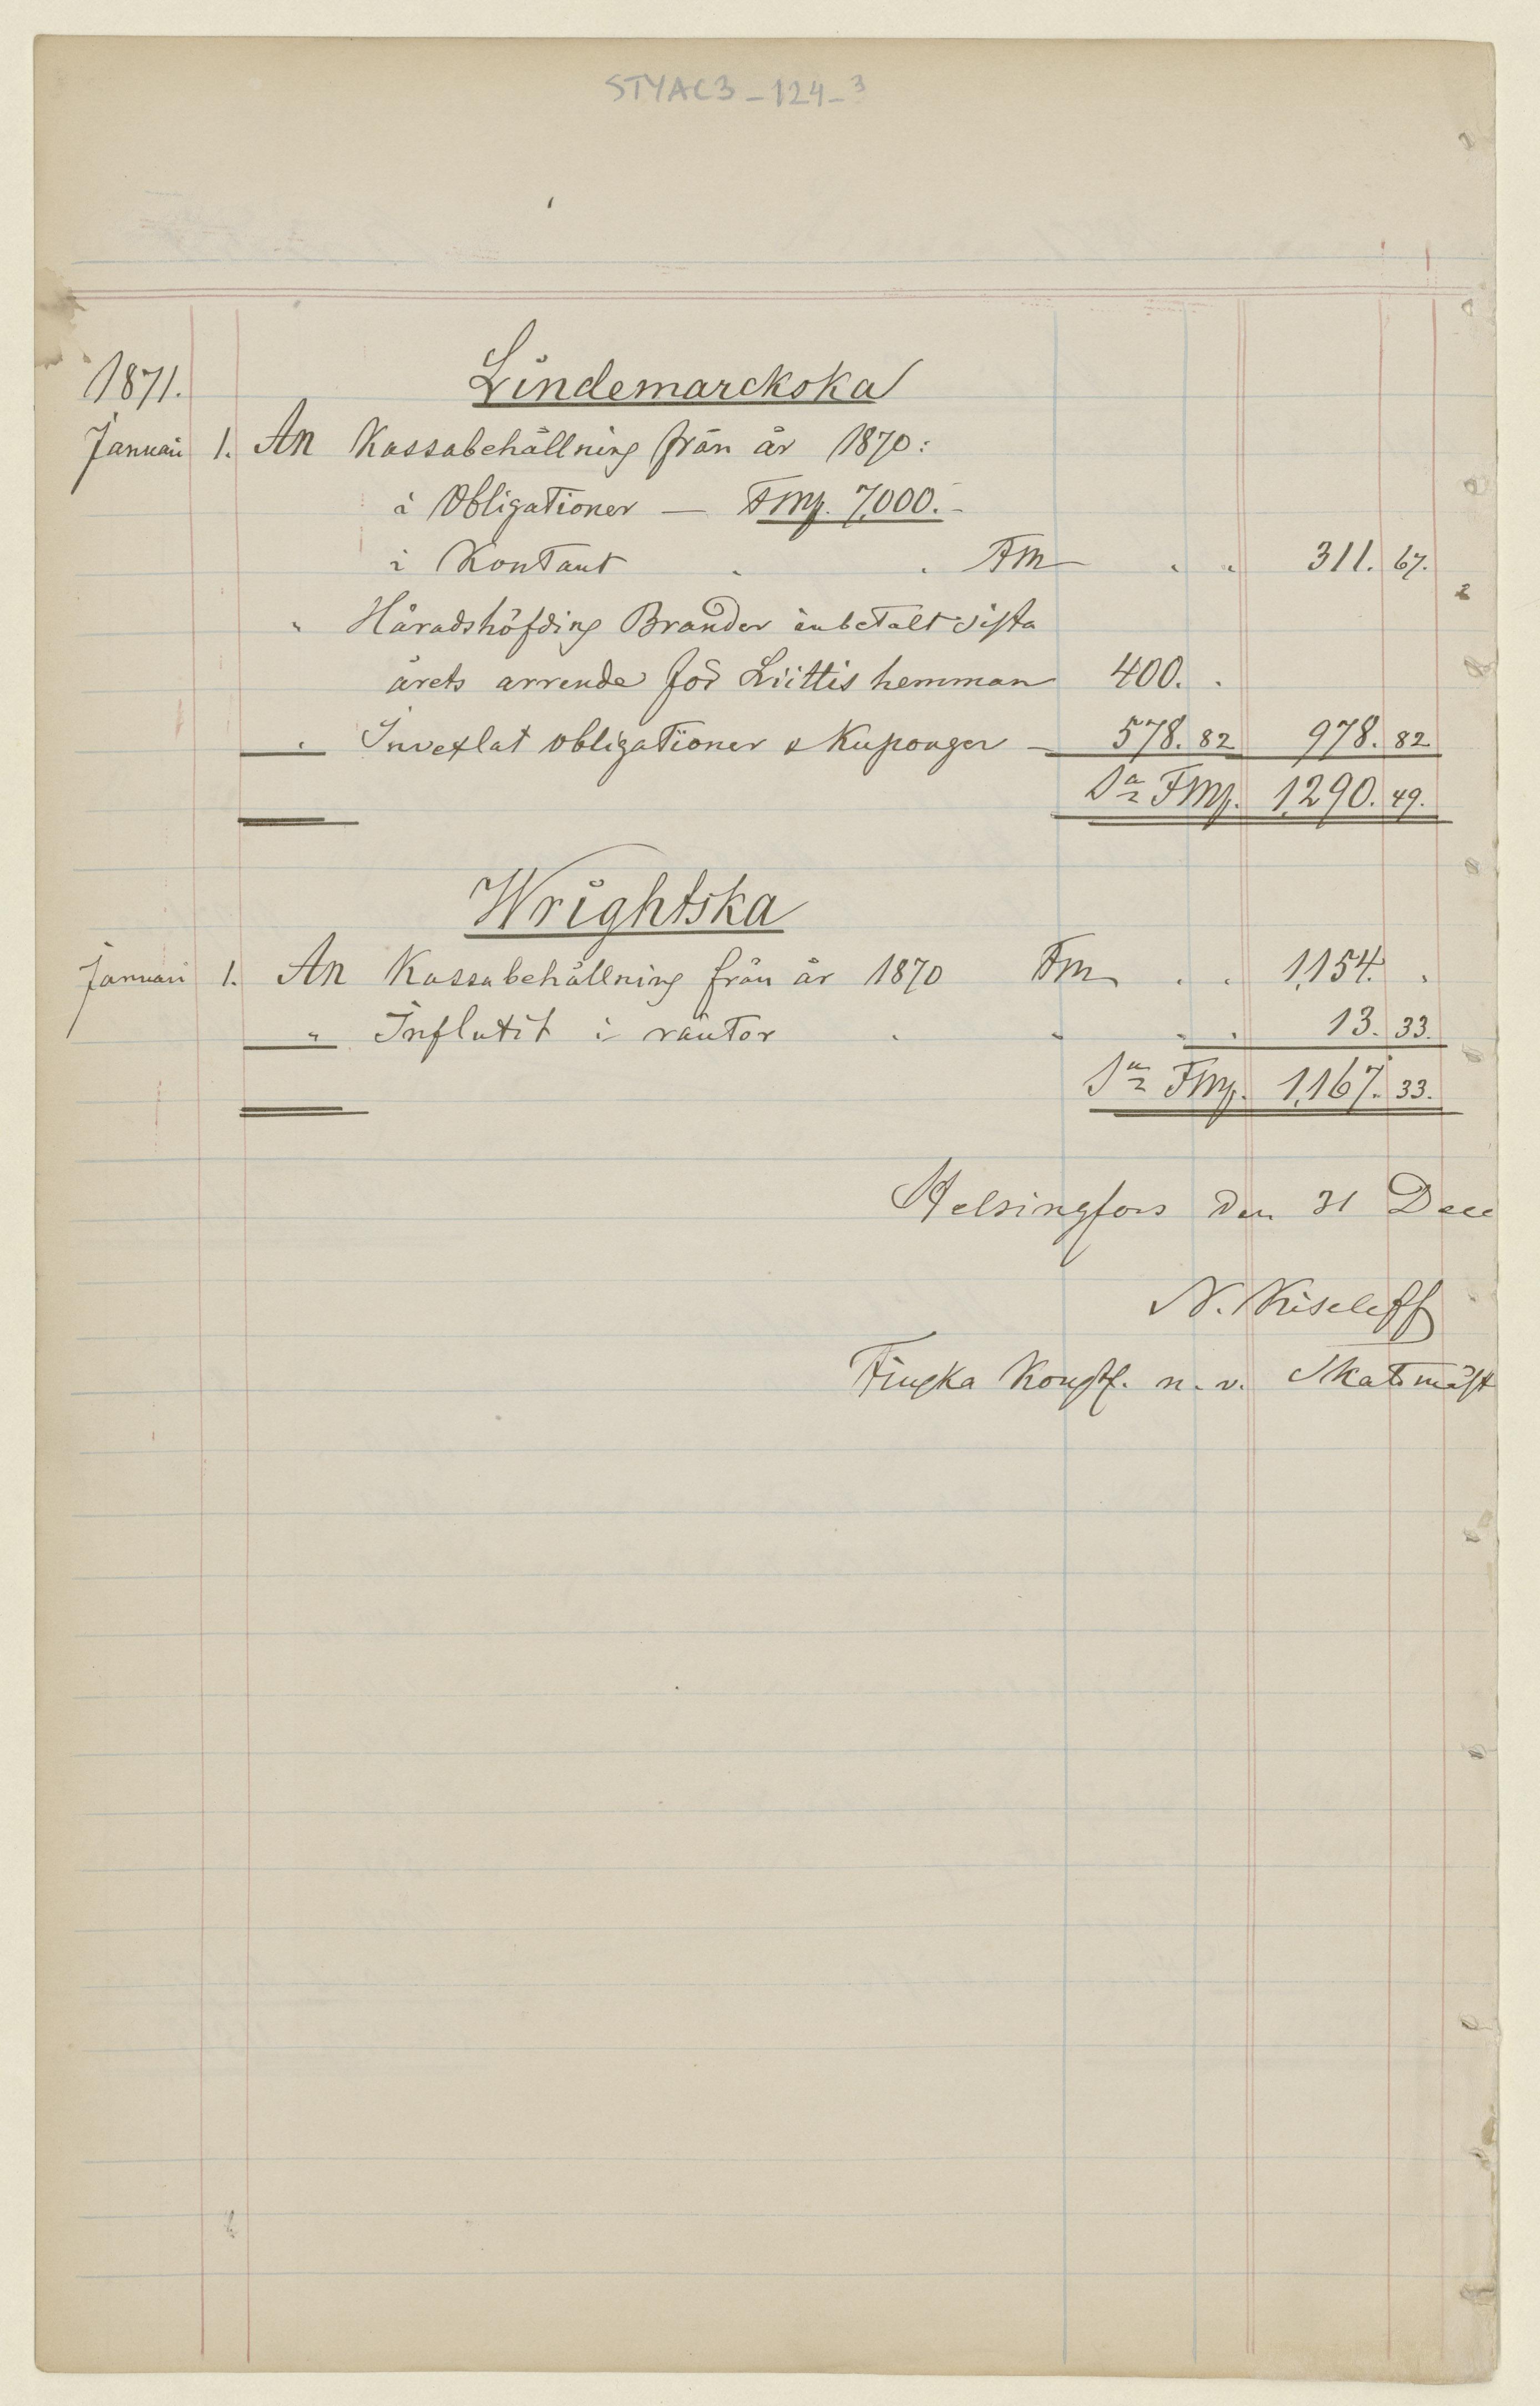 STYAC3_124_3
1871. Lindemarckska
Januari 1. An Kassabehållning från år 1870:
i Obligationer — Fmp. 7,000.-
i Kontant . . Fm . . 311. 67.
" Häradshöfding Brander inbetalt sista
årets arrende för Liittis hemman 400. .
" Invexlat obligationer & Kuponger — 578. 82 978. 82
Sa Fmp. 1,290. 49.
Wrightska
Januari 1. An Kassabehållning från år 1870 Fm . . 1,154. .
" Influtit i räntor . . . . 13. 33.
Sa Fmp. 1,167. 33.
Helsingfors den 31 Dece
N. Kiseleff
Finska Konstf. n. v. Skattmäst